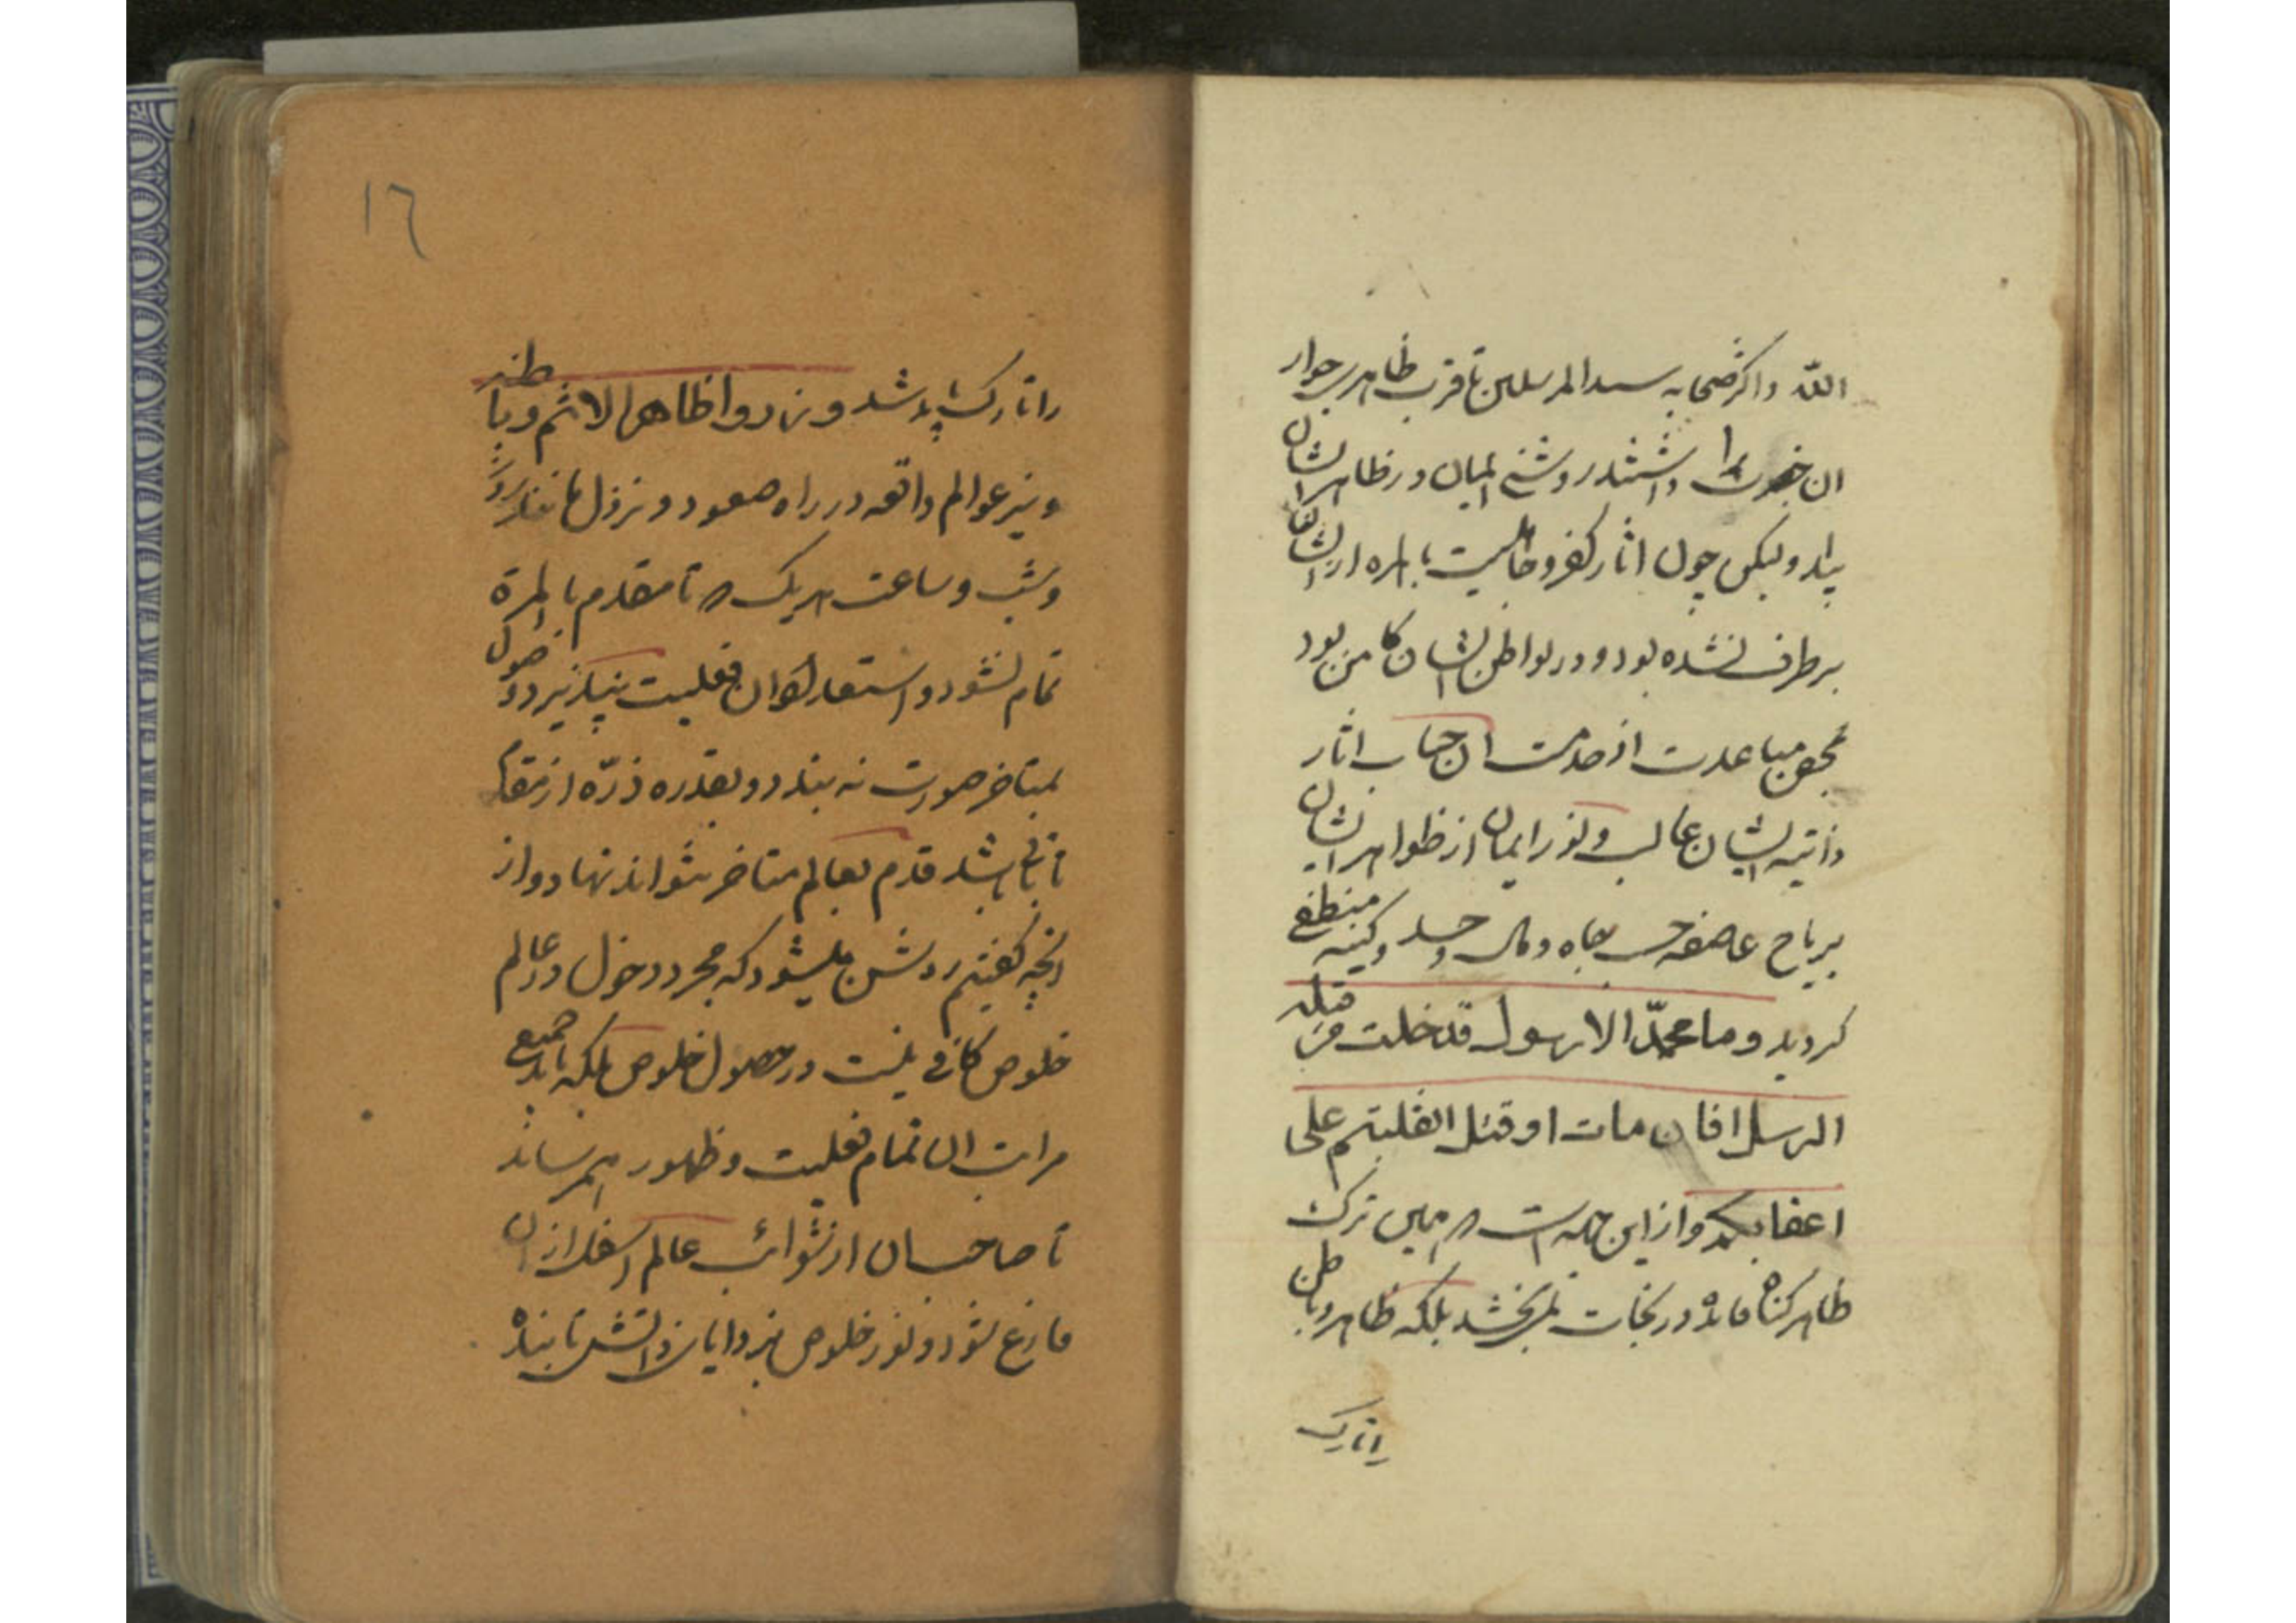 الله و اکثر صحابه سید المرسلین تا قرب ظاهر بجوار
ان حضرت را داشتند روشنی ایمان در ظاهر ایشان
پیدا و لیکن چون اثار کفر و جاهلیت بالمره از ایشان
برطرف نشده بود و در بواطن ایشان کامن بود
بمحض مباعدت از خدمت ان جناب اثار
ذاتیه ایشان غالب و نور ایمان از ظواهر ایشان
بریاح عاصفه حب جاه و مال و حسد و کینه منطفی
کردید وما محمّد الا رسول قد خلت من قبله
الرسل افان مات او قتل انقلبتم علی
اعقابکم و از این جهه است که همین ترک
ظاهر کناه فائده در نجات نمی‌بخشد بلکه ظاهر و باطن
را تارک
را تارک باید شد وذروا ظاهر الاثم وباطنه
و نیز عوالم واقعه در راه صعود و نزول مانند روز
و شب و ساعت هر یک که تا مقدم بالمرة
تمام نشود و استعداد ان فعلیت نپذیرد وصول
بمتاخر صورت نه بندد و بقدر ذرّه از مقدم
تا باقی باشد قدم بعالم متاخر نتواند نهاد و از
انچه کفتیم روشن میشود که مجرد دخول در عالم
خلوص کافی نیست در حصول خلوص بلکه باید جمیع
مراتب ان تمام فعلیت و ظهور بهم رساند
تا صاحب ان از شوائب عالم اسفل از ان
فارغ شود و نور خلوص
١٦